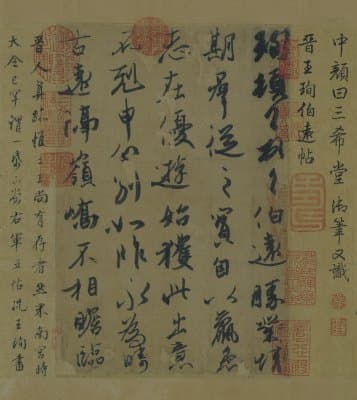 中顏曰三希堂御筆又識
晉王珣伯遠帖
珣頓首頓首伯遠勝業情
期群從之寶自以羸患
志在優遊始獲此出意
不剋申分別如昨永為疇
古遠隔嶺嶠不相瞻臨
晉人真跡惟二王尚有存者然米南宮時
大令已罕謂一紙可當右軍五帖況王珣書